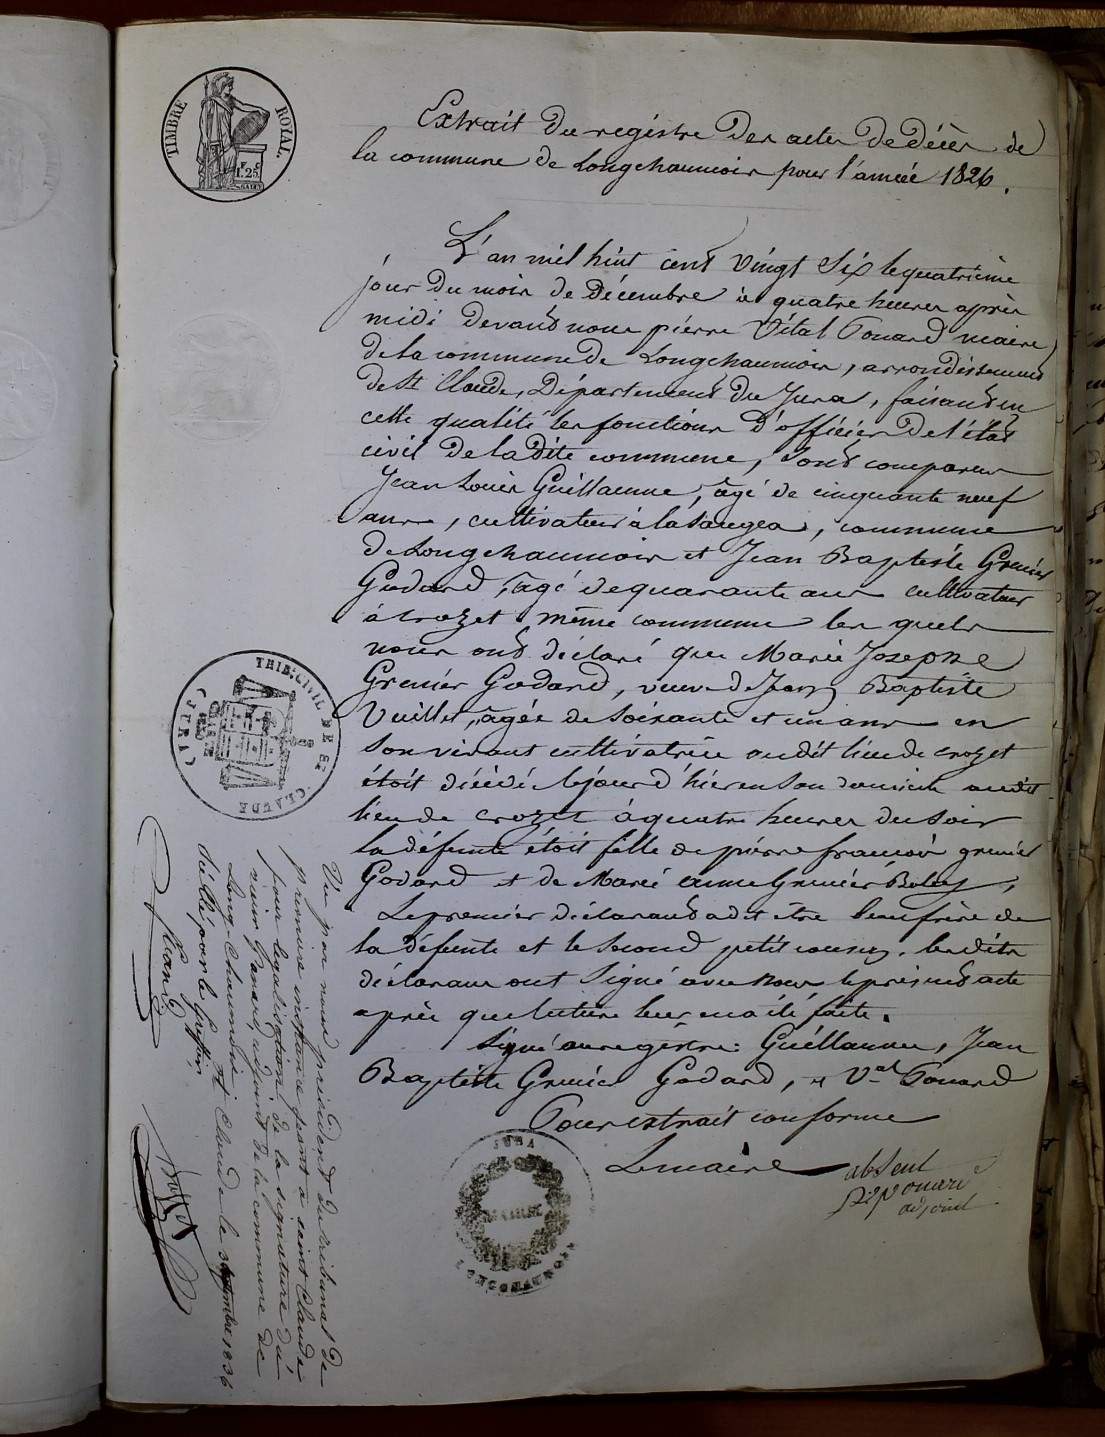 TIMBRE ROYAL
1F.25C
Extrait du registre des actes de décès de
la commune de Longchaumois pour l'année 1826.
L'an mil huit cent vingt six le quatrième
jour du mois de Décembre à quatre heures après
midi devant nous pierre Vital Ponard maire
de la commune de Longchaumois, arrondissement
de St Claude, Département du Jura, faisant en
cette qualité les fonctions d'officier de l'état
civil de la dite commune, sont comparus
Jean Louis Guillaume, âgé de cinquante neuf
ans, cultivateur à la Saugea, commune
de Longchaumois et Jean Baptiste Grenier
Godard, âgé de quarante ans cultivateur
à crozet même commune les quels
nous ont déclaré que Marie Josephe
Grenier Godard, veuve de Jean Baptiste
Vuillet, âgée de soixante et un ans en
son vivant cultivatrice audit lieu de crozet
étoit décédé le jour d'hier en son domicile audit
lieu de crozet à quatre heures du soir
la défunte étoit fille de pierre françois grenier
Godard et de Marie anne Grenier
Le premier déclarant a dit être beau frère de
la défunte et le second petit cousin. les dits
déclarans ont signé avec nous le présent acte
après que lecture leur en a été faite.
Signé au registre: Guillaume, Jean
Baptiste Grenier Godard, et Val Ponard
Pour extrait conforme
Le maire absent
ponard
adjoint
JURA
MAIRIE
LONGCHAUMOIS
TRIB. CIVIL DE ST CLAUDE
(JURA)
Vu par nous président du tribunal de
première instance séant à saint Claude
pour légalisation de la signature du
sieur Ponard, adjoint de la commune de
Long-Chaumois. St Claude le septembre 1836